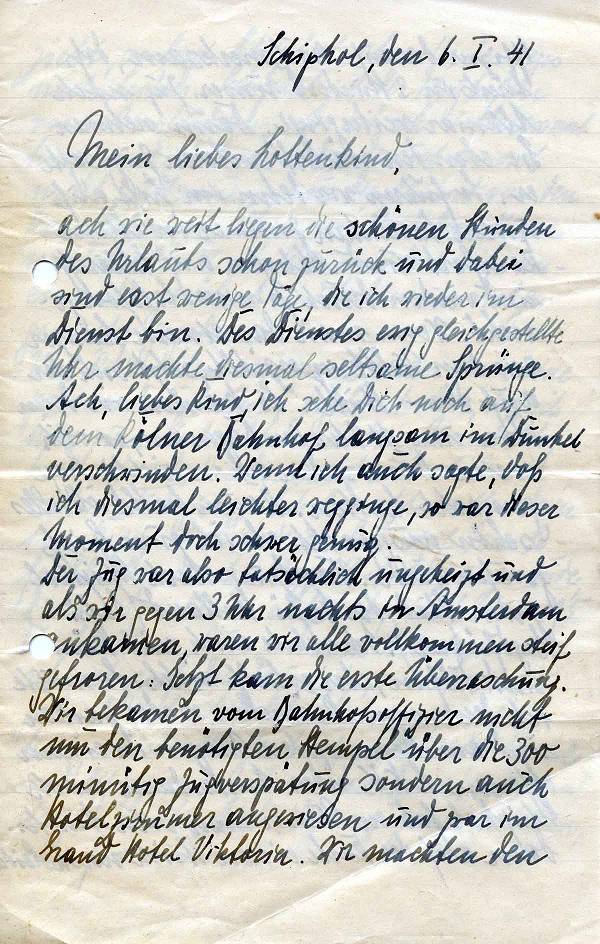 Schiphol, den 6. I. 41
Mein liebes Lottenkind,
ach wie weit liegen die schönen Stunden
des Urlaubs schon zurück und dabei
sind erst wenige Tage, die ich wieder im
Dienst bin. Des Dienstes ewig gleichgestellte
Uhr machte diesmal seltsame Sprünge.
Ach, liebes Kind, ich sehe Dich noch auf
dem Kölner Bahnhof langsam im Dunkel
verschwinden. Wenn ich auch sagte, daß
ich diesmal leichter wegginge, so war dieser
Moment doch schwer genug.
Der Zug war also tatsächlich ungeheizt und
als wir gegen 3 Uhr nachts in Amsterdam
ankamen, waren wir alle vollkommen steif
gefroren. Jetzt kam die erste Überraschung.
Wir bekamen vom Bahnhofsoffizier nicht
nur den benötigten Stempel über die 300
minütig Zugverspätung sondern auch
Hotelzimmer angewiesen und zwar im
Grand Hotel Viktoria. Wir machten den